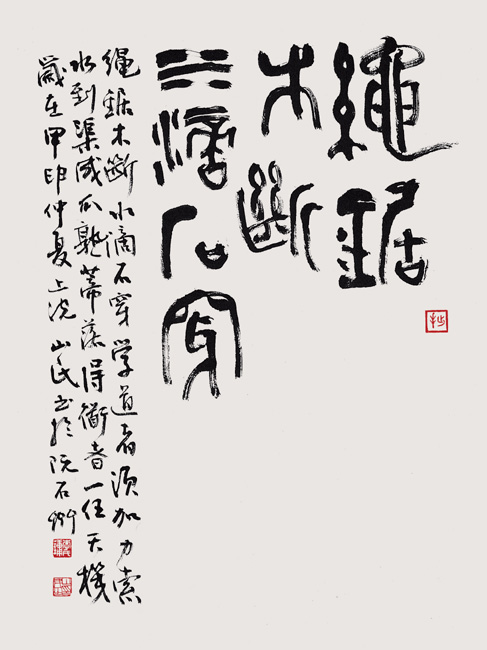 繩鋸
木斷
水滴石穿
绳鋸木斷水滴石穿学道者须加力索
水到渠成瓜熟蒂落得衜者一任天機
歲在甲申仲夏上浣山民书於石